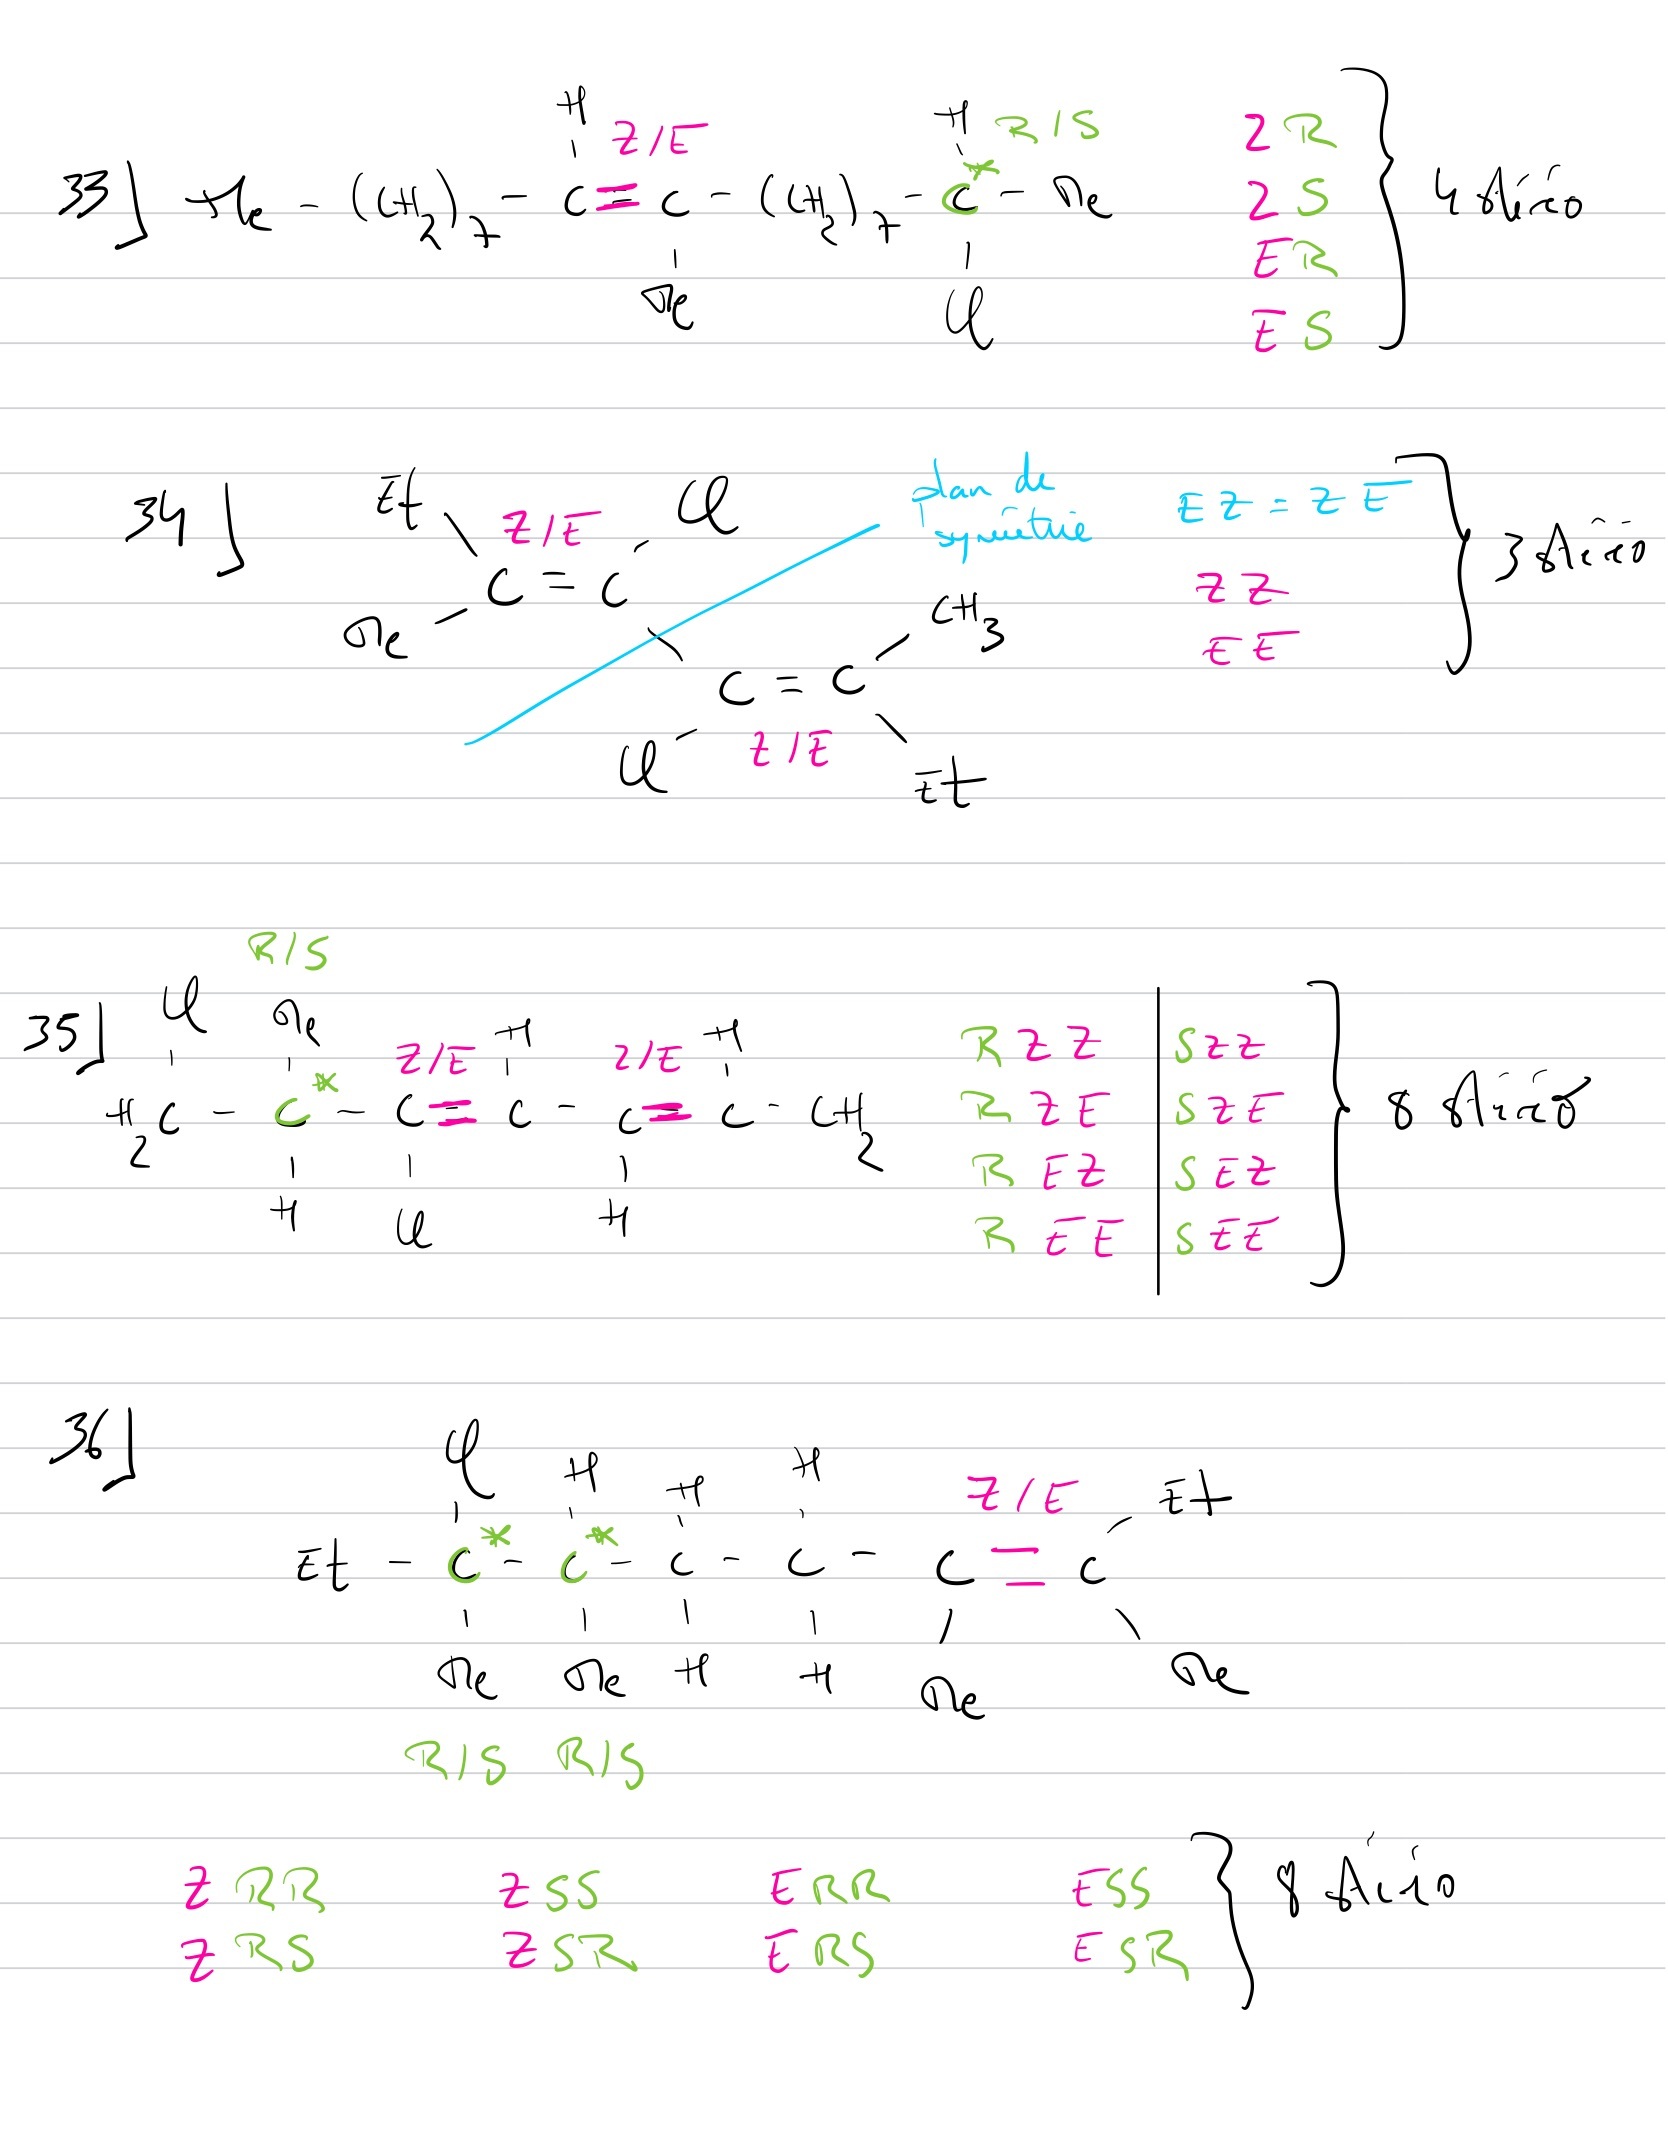 33] Me - (CH2)7 - C = C - (CH2)7 - C* - Me
H Z/E H R/S
Me Cl
Z R
Z S
E R
E S
4 stéréo
34] Et Z/E Cl
Me C = C
C = C CH3
Cl Z/E Et
plan de
symétrie
E Z = Z E
Z Z
E E
3 stéréo
R/S
35] Cl Me Z/E H Z/E H
H2C - C* - C = C - C = C - CH2
H Cl H
R Z Z | S Z Z
R Z E | S Z E
R E Z | S E Z
R E E | S E E
8 stéréo
36]
Cl H H H Z/E Et
Et - C* - C* - C - C - C = C
Me Me H H Me Me
R/S R/S
Z RR Z SS E RR E SS
Z RS Z SR E RS E SR
8 stéréo